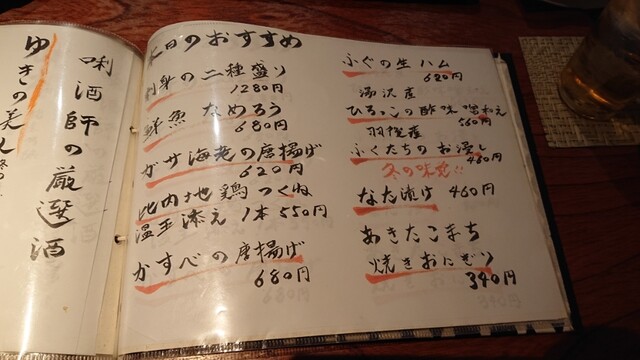 唎酒師の厳選酒
ゆきの美人
本日のおすすめ
刺身の二種盛り
1280円
鮮魚 なめろう
680円
ガサ海老の唐揚げ
620円
比内地鶏つくね
温玉添え 1本550円
かすべの唐揚げ
680円
ふぐの生ハム
620円
湯沢産
ひろっこの酢味噌和え
560円
羽後産
ふくたちのお浸し
460円
冬の味覚!!
なた漬け 460円
あきたこまち
焼きおにぎり
340円